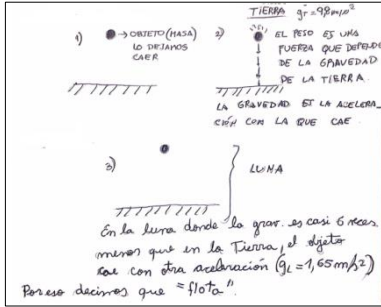 TIERRA g_T = 9,8 m/s²
1) → OBJETO (MASA)
LO DEJAMOS
CAER
2) EL PESO ES UNA
FUERZA QUE DEPENDE
DE LA GRAVEDAD
DE LA TIERRA.
LA GRAVEDAD ES LA ACELERA_
CIÓN CON LA QUE CAE
3) LUNA
En la luna donde la grav. es casi 6 veces
menos que en la Tierra, el objeto
cae con otra aceleración (g_L = 1,65 m/s²)
Por eso decimos que "flota".